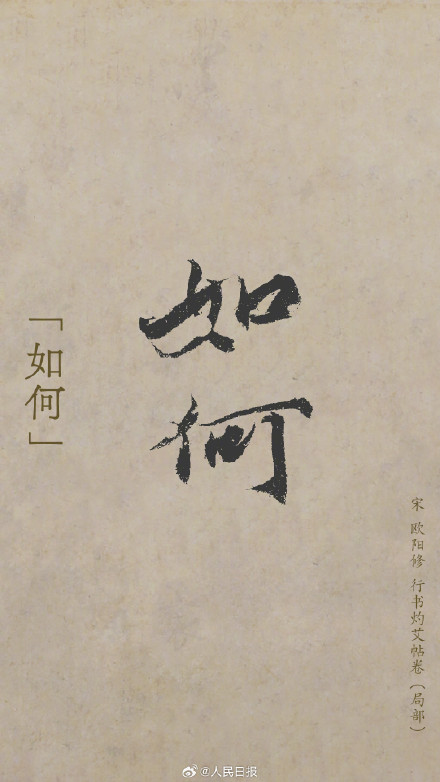 如何
「如何」
宋 欧阳修 行书灼艾帖卷（局部）
@人民日报